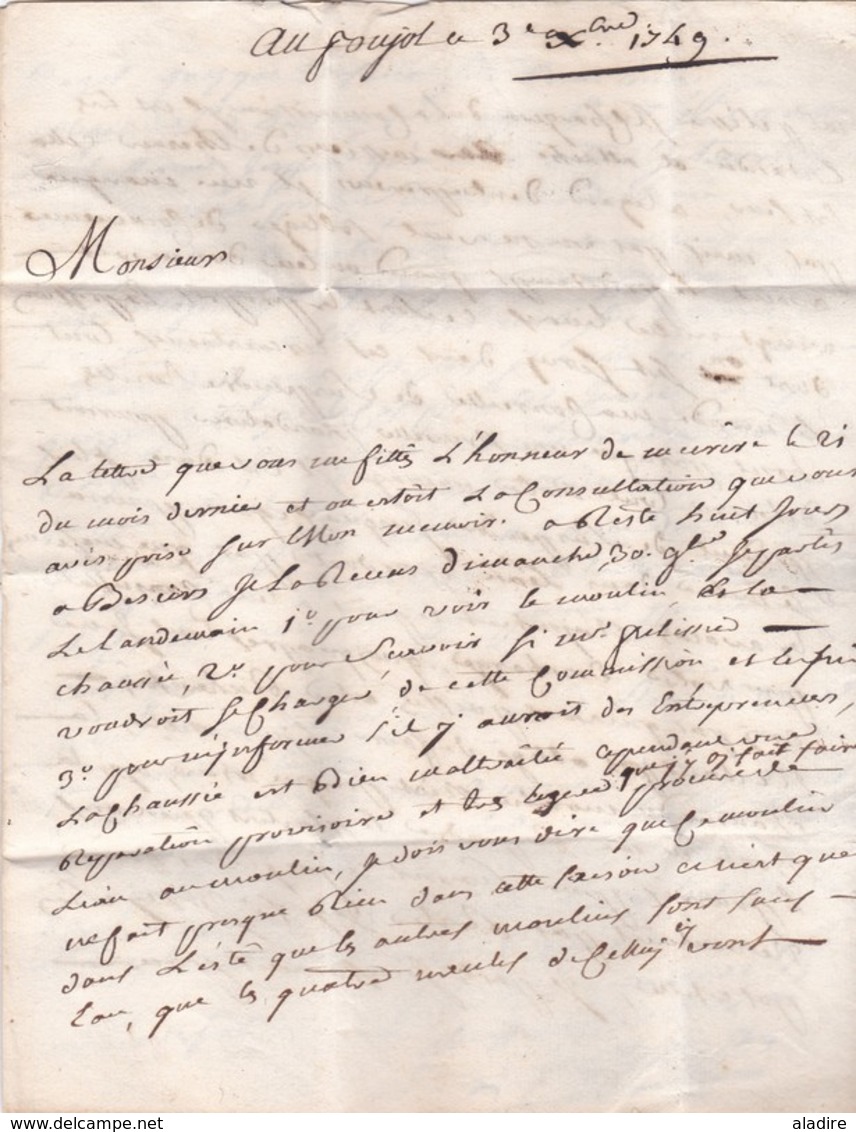 Au poujol ce 3e Xbre 1749.
Monsieur
La lettre que vous me fittes L'honneur de m'ecrire le 21
du mois dernier et ou estoit La Consultation que vous
avés prise sur Mon memoir. a Resté huit Jours
a Besiers Je La Receus dimanche 30. 9bre Je partis
Le Landemain 1o. pour voir le moulin Et La
chaussée, 2o. pour Scavoir si mr. pelissie
voudroit se Charger de cette Commission et le prix
3o. pour m'informer s'il y auroit des Entrepreneurs,
La Chaussée est Bien maltraitée cependant une
Reparation provisoire et tres que j'y ai fait faire
procure de
L'eau au moulin, Je dois vous dire que Ce moulin
ne fait presque Rien dans cette saison ce n'est que
dans L'esté que les autres moulins sont sans
Eau, que les quatre meules de Celluy cy vont
delcampe.net
aladire